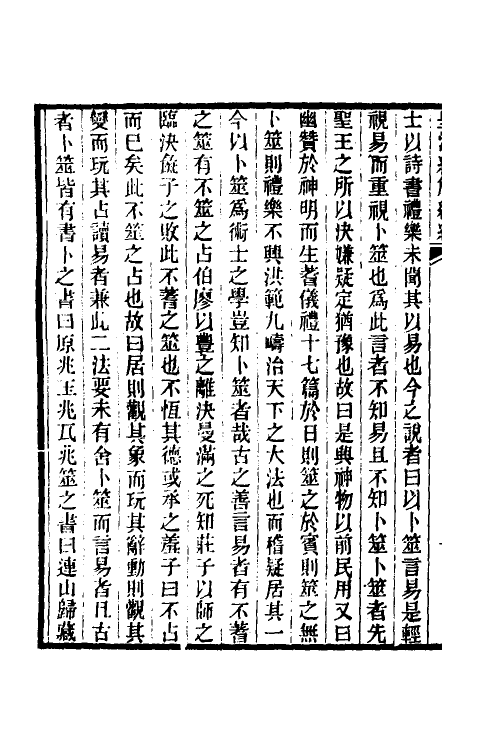 士以詩書禮樂未聞其以易也今之說者曰以卜筮言易是輕
視易而重視卜筮也爲此言者不知易且不知卜筮卜筮者先
聖王之所以決嫌疑定猶豫也故曰是興神物以前民用又曰
幽贊於神明而生蓍儀禮十七篇於日則筮之於賓則筮之無
卜筮則禮樂不興洪範九疇治天下之大法也而稽疑居其一
今以卜筮爲術士之學豈知卜筮者哉古之善言易者有不蓍
之筮有不筮之占伯廖以豐之離決曼滿之死知莊子以師之
臨決彘子之敗此不蓍之筮也不恆其德或承之羞子曰不占
而已矣此不筮之占也故曰居則觀其象而玩其辭動則觀其
變而玩其占讀易者兼此二法要未有舍卜筮而言易者且古
者卜筮皆有書卜之書曰原兆玉兆瓦兆筮之書曰連山歸藏